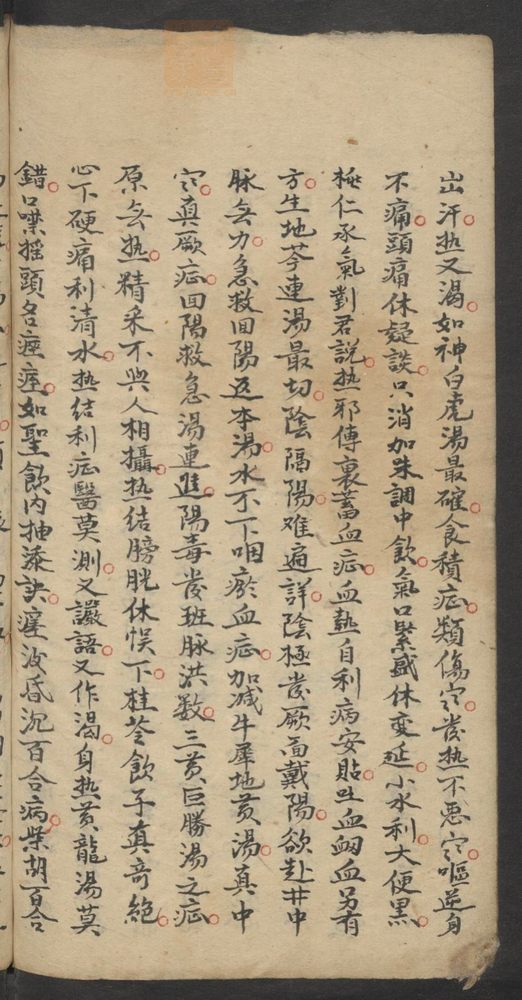 出汗热又渴如神白虎湯最確食積症類傷寒發热不恶寒嘔逆身
不痛頭痛休疑談只消加味調中飲氣口緊盛休变延小水利大便黑
極仁承氣對君說热邪傳裏蓄血症血熱自利病安貼吐血衂血另有
方生地芩連湯最切陰隔陽难遍詳陰極發厥面戴陽欲赴井中
脉無力急救回陽返本湯水不下咽瘀血症加减牛犀地黄湯真中
寒真厥症回陽救急湯連進陽毒發班脉洪数三黄巨勝湯之症
原無热精采不與人相攝热结膀胱休悮下桂苓飲子真奇絶
心下硬痛利清水热结利症醫莫測又讝語又作渴身热黄龍湯莫
錯口噤摇頭名痙痓如聖飲内抽添訣瘥後昏沉百合病柴胡百合